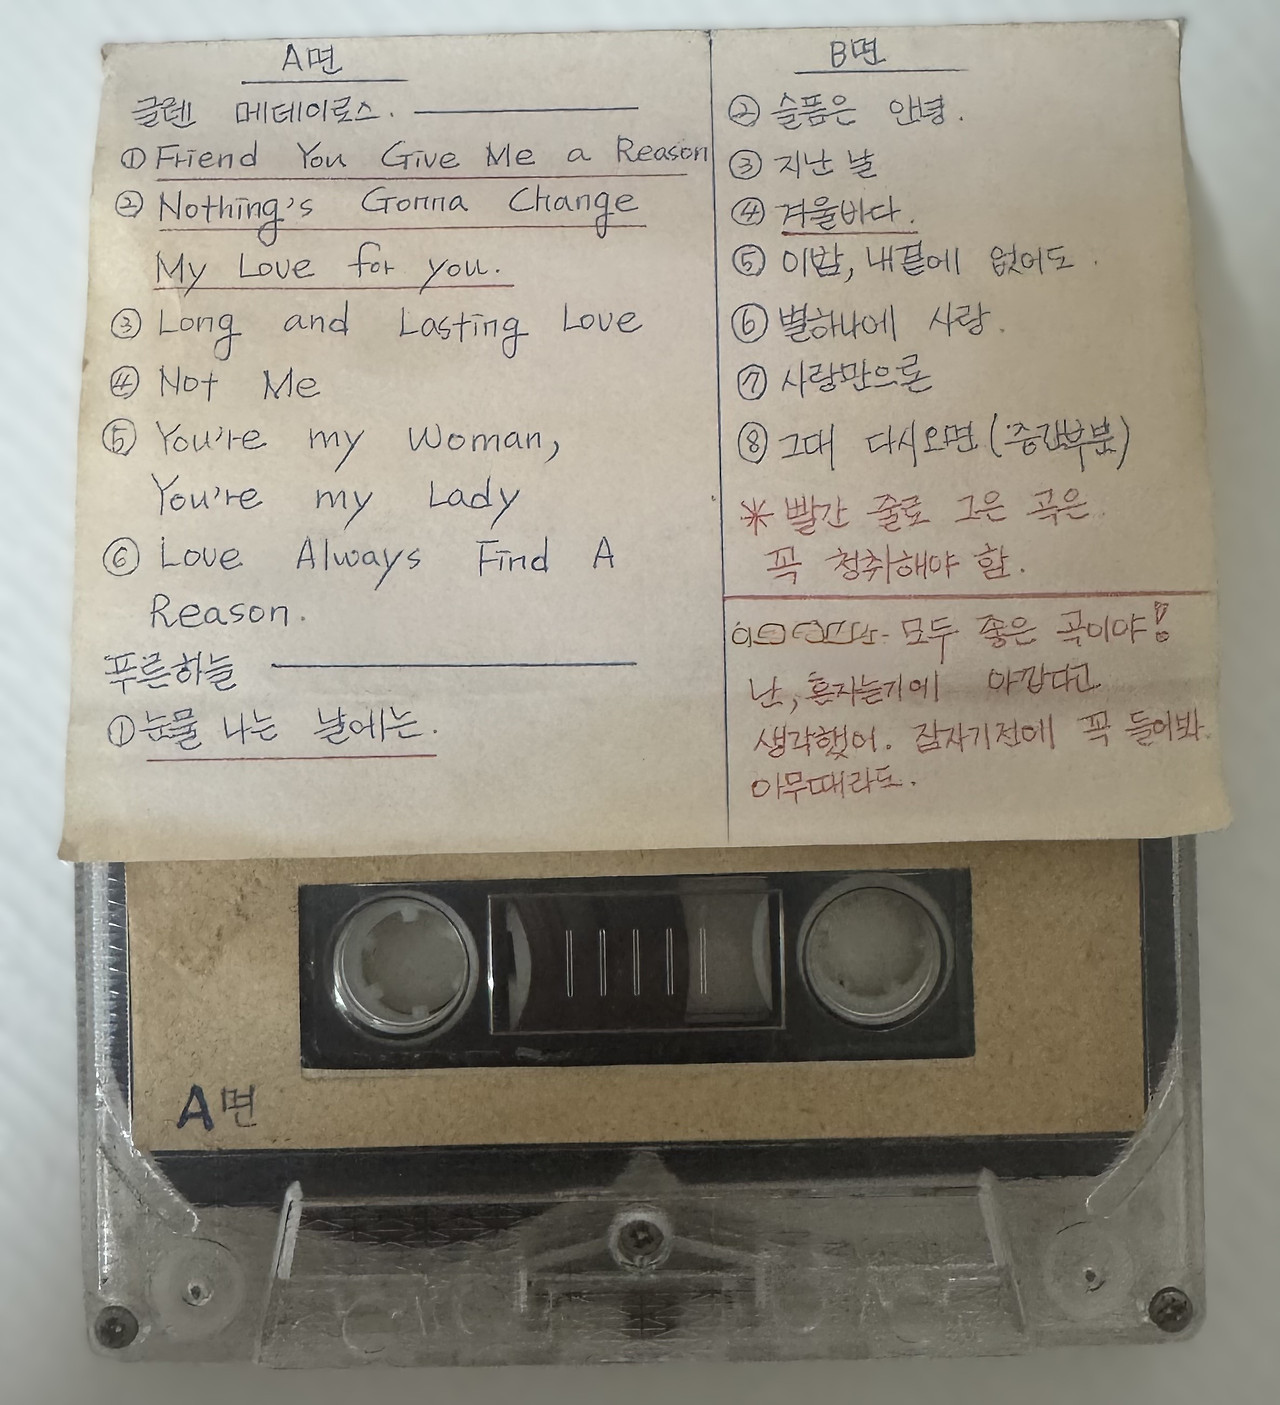 A면
글렌 메데이로스.
① Friend You Give Me a Reason
② Nothing's Gonna Change
My Love for you.
③ Long and Lasting Love
④ Not Me
⑤ You're my Woman,
You're my Lady
⑥ Love Always Find A
Reason.
푸른하늘
① 눈물 나는 날에는.
B면
② 슬픔은 안녕.
③ 지난 날
④ 겨울바다.
⑤ 이밤, 내곁에 없어도.
⑥ 별하나에 사랑.
⑦ 사랑만으론
⑧ 그대 다시오면 (중간부분)
* 빨간 줄로 그은 곡은
꼭 청취해야 함.
모두 좋은 곡이야!
난, 혼자듣기에 아깝다고
생각했어. 잠자기전에 꼭 들어봐.
아무때라도.
A면